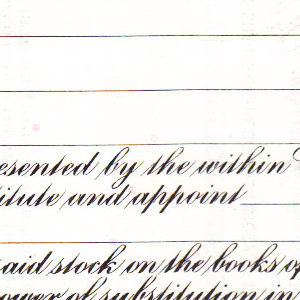 esented by the within
titute and appoint
aid stock on the books of
ower of substitution in